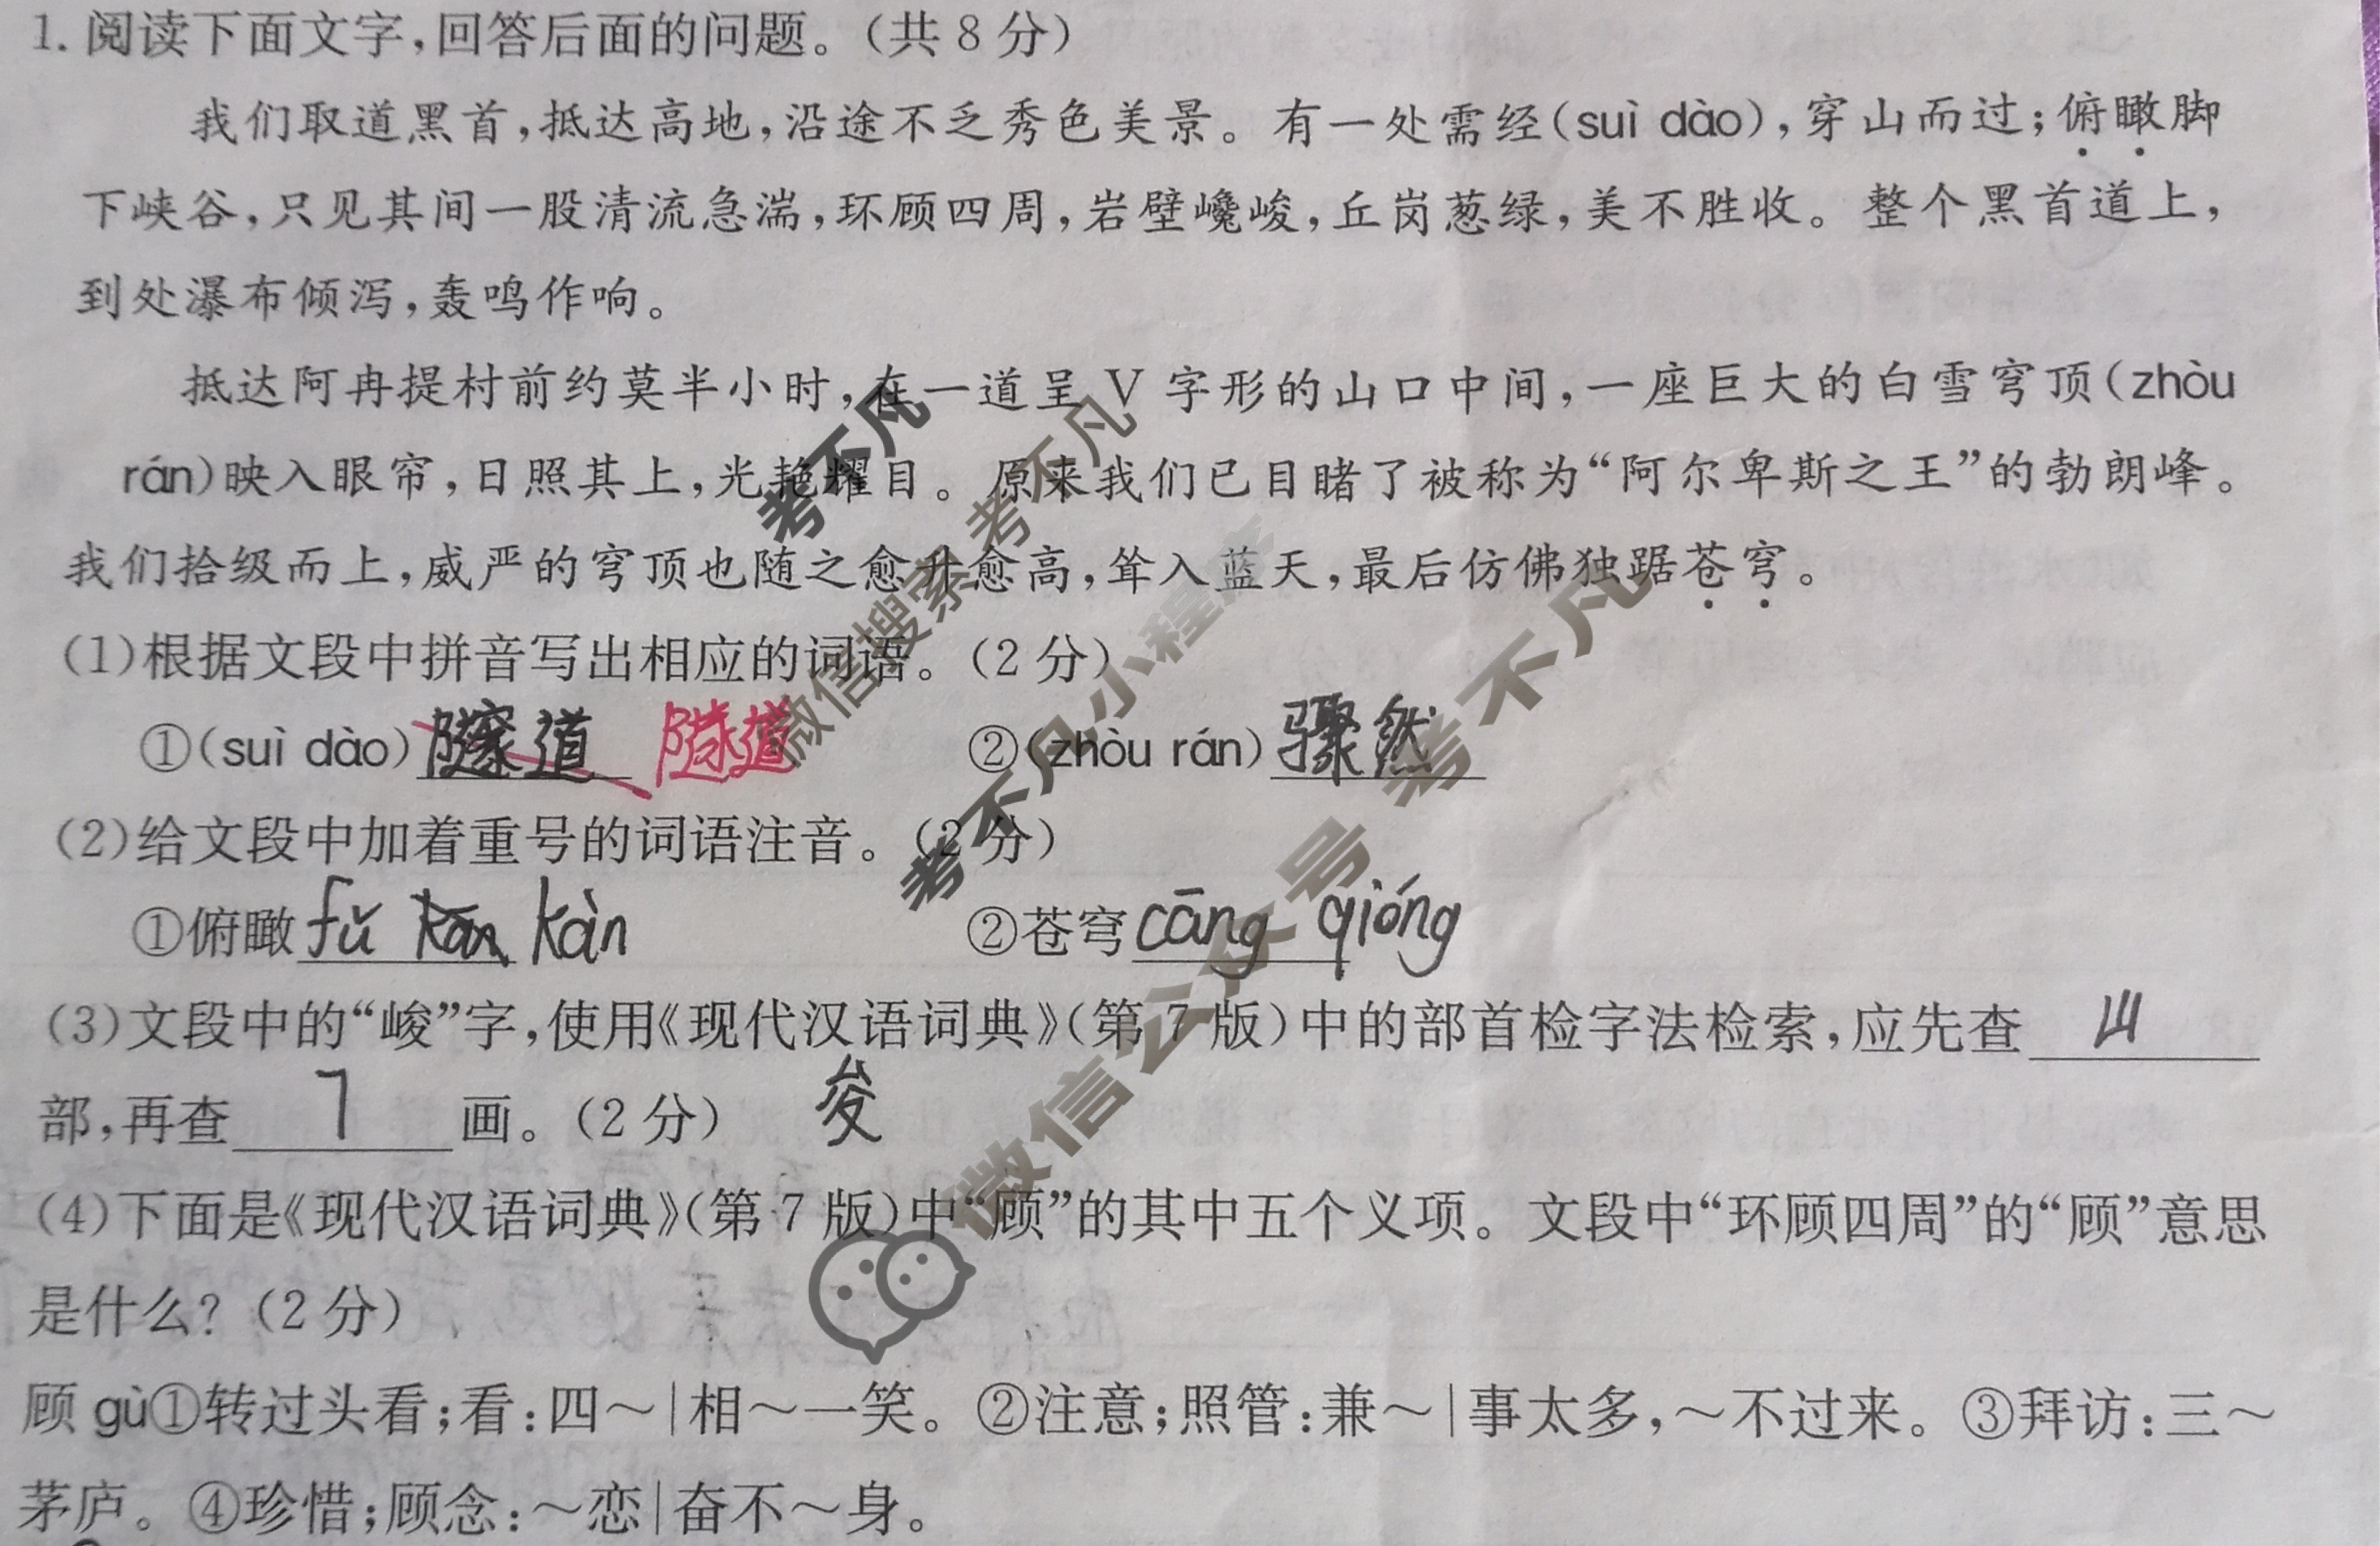 1.阅读下面文字,回答后面的问题。(共8分)
我们取道黑首,抵达高地,沿途不乏秀色美景。有一处需经(suì dào),穿山而过;俯瞰脚
下峡谷,只见其间一股清流急湍,环顾四周,岩壁巉峻,丘岗葱绿,美不胜收。整个黑首道上,
到处瀑布倾泻,轰鸣作响。
抵达阿冉提村前约莫半小时,在一道呈V字形的山口中间,一座巨大的白雪穹顶(zhòu
rán)映入眼帘,日照其上,光艳耀目。原来我们已目睹了被称为“阿尔卑斯之王”的勃朗峰。
我们拾级而上,威严的穹顶也随之愈升愈高,耸入蓝天,最后仿佛独踞苍穹。
(1)根据文段中拼音写出相应的词语。(2分)
①(suì dào) 道 隧道 ②(zhòu rán)骤然
(2)给文段中加着重号的词语注音。(2分)
①俯瞰fǔ kàn ②苍穹cāng qióng
(3)文段中的“峻”字,使用《现代汉语词典》(第7版)中的部首检字法检索,应先查山
部,再查7画。(2分) 夋
(4)下面是《现代汉语词典》(第7版)中“顾”的其中五个义项。文段中“环顾四周”的“顾”意思
是什么?(2分)
顾gù①转过头看;看:四～|相～一笑。②注意;照管:兼～|事太多,～不过来。③拜访:三～
茅庐。④珍惜;顾念:～恋|奋不～身。
考不凡
微信搜索 考不凡
考不凡小程序
微信公众号 考不凡